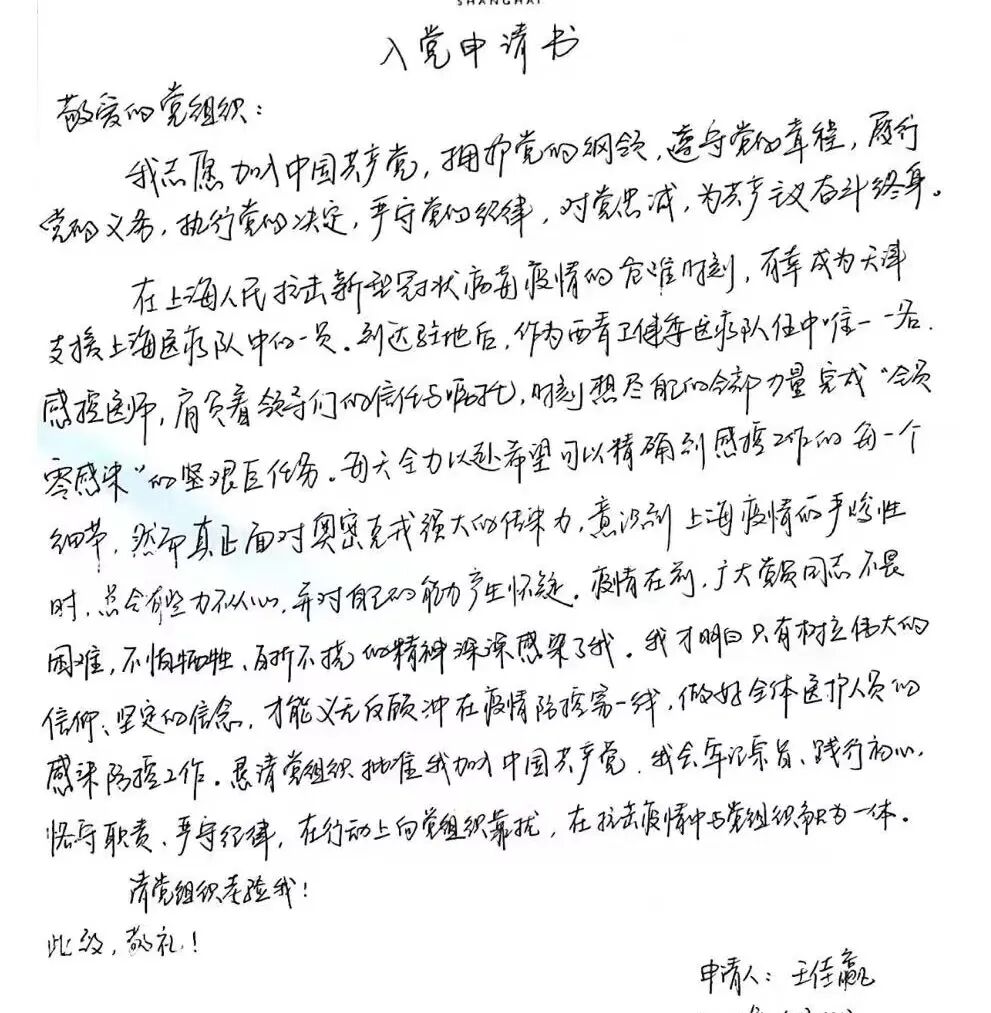 SHANGHAI
入党申请书
敬爱的党组织：
我志愿加入中国共产党，拥护党的纲领，遵守党的章程，履行
党的义务，执行党的决定，严守党的纪律，对党忠诚，为共产主义奋斗终身。
在上海人民抗击新型冠状病毒疫情的危难时刻，有幸成为天津
支援上海医疗队中的一员。到达驻地后，作为西青卫健委医疗队伍中唯一一名
感控医师，肩负着领导们的信任与嘱托，时刻想尽自己的全部力量完成“全员
零感染”的坚艰巨任务。每天全力以赴希望可以精确到感控工作的每一个
细节，然而真正面对奥密克戎强大的传染力，意识到上海疫情的严峻性
时，总会有些力不从心，并对自己的能力产生怀疑。疫情在前，广大党员同志不畏
困难，不怕牺牲、百折不挠的精神深深感染了我。我才明白只有树立伟大的
信仰、坚定的信念，才能义无反顾冲在疫情防控第一线，做好全体医护人员的
感染防控工作。恳请党组织批准我加入中国共产党，我会牢记宗旨、践行初心、
恪守职责、严守纪律，在行动上向党组织靠拢，在抗击疫情中与党组织融为一体。
请党组织考验我！
此致，敬礼！
申请人：王佳赢